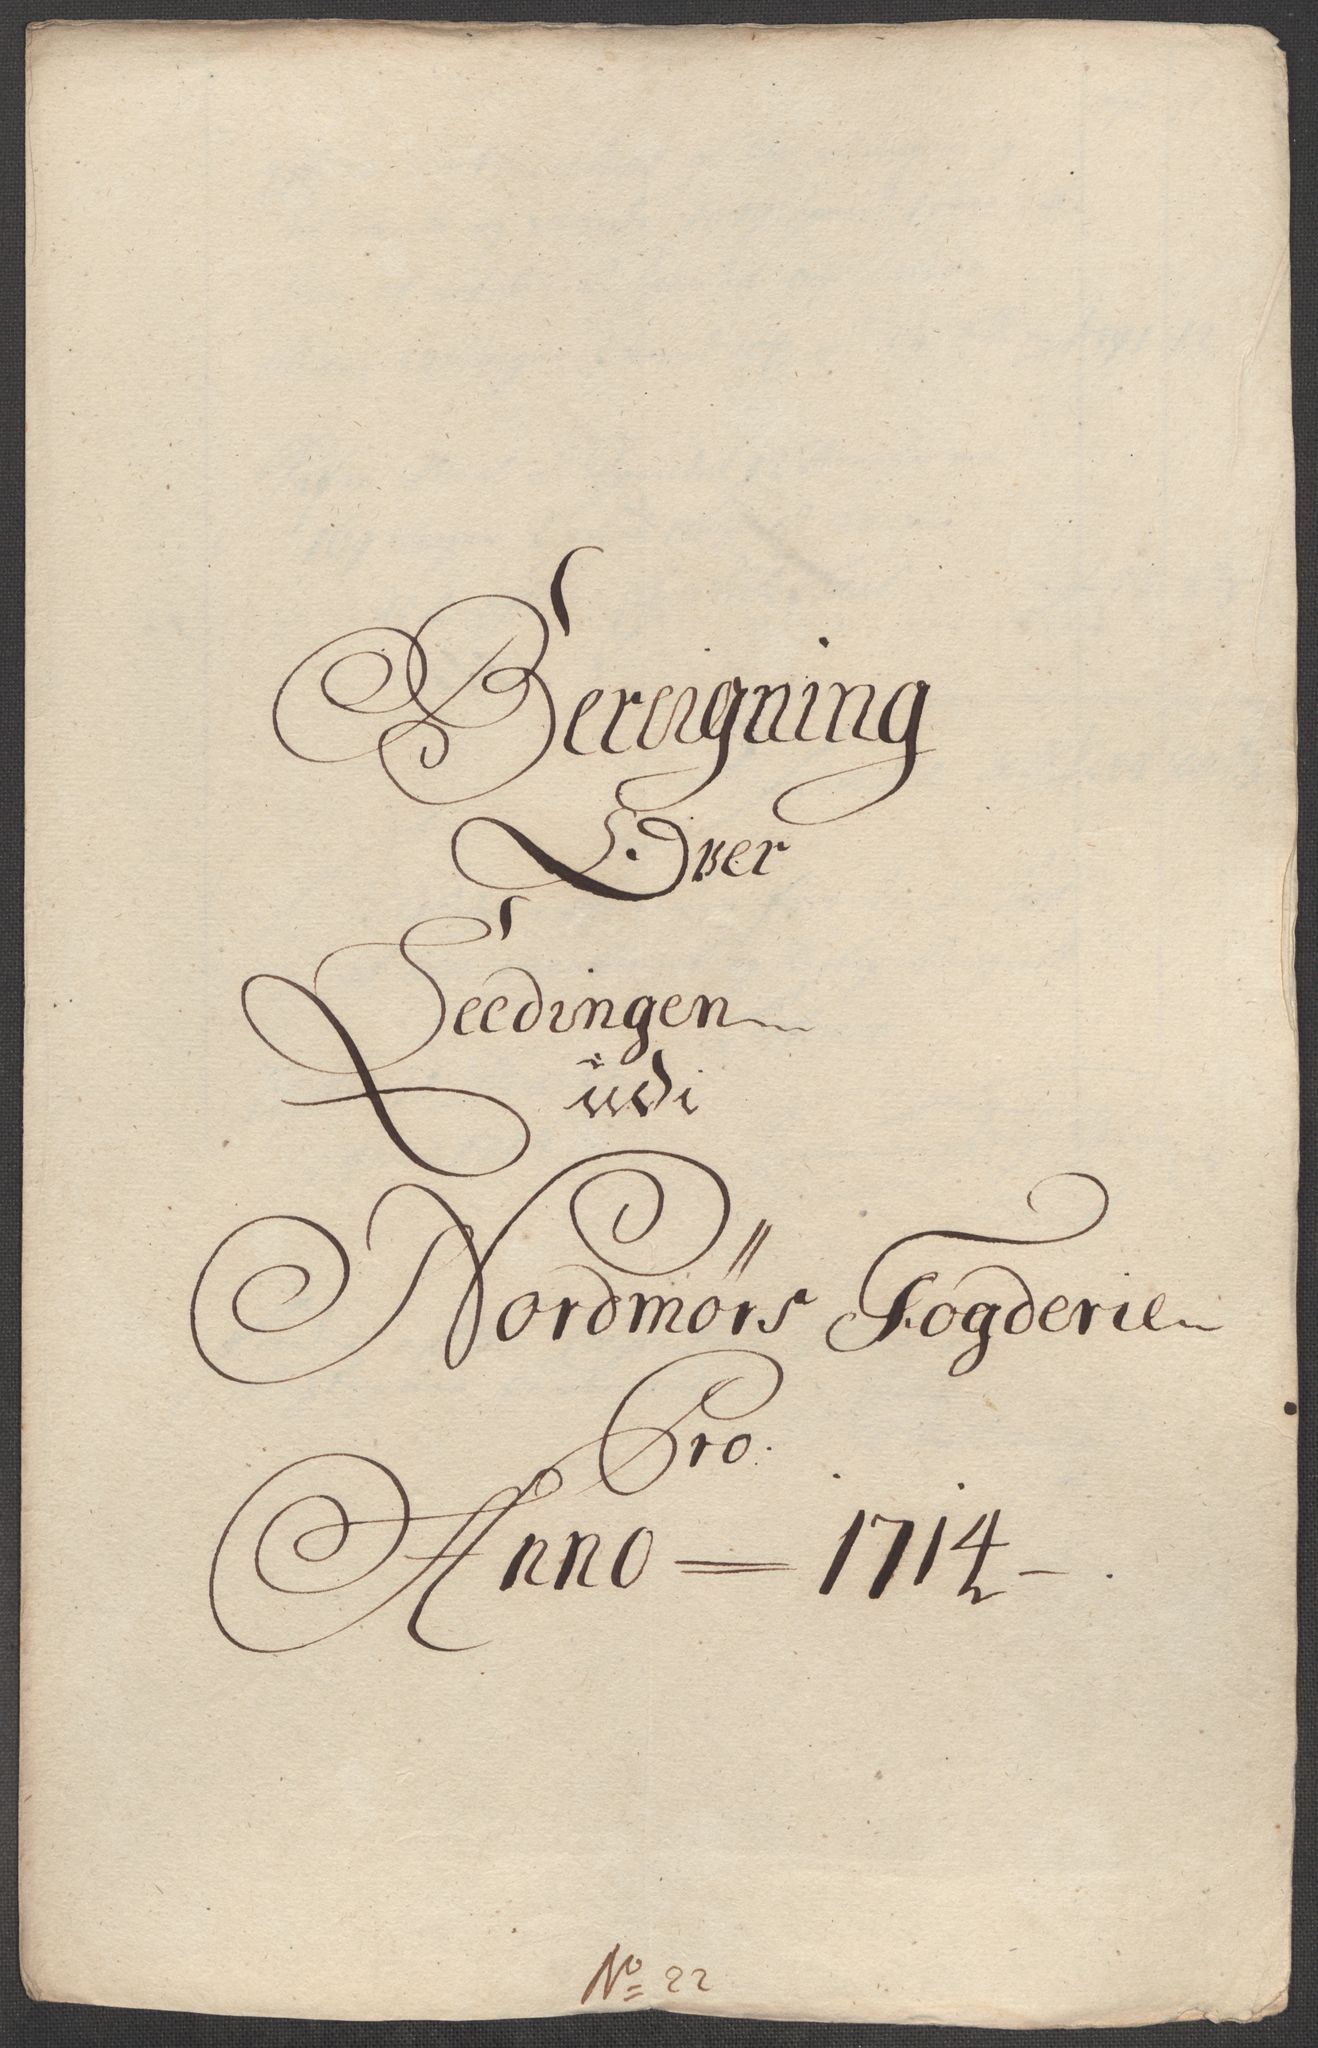 Bereigning
Over
Leedingen
udi
Nordmörs Fogderie
Pro.
Anno = 1714 -.
No 22